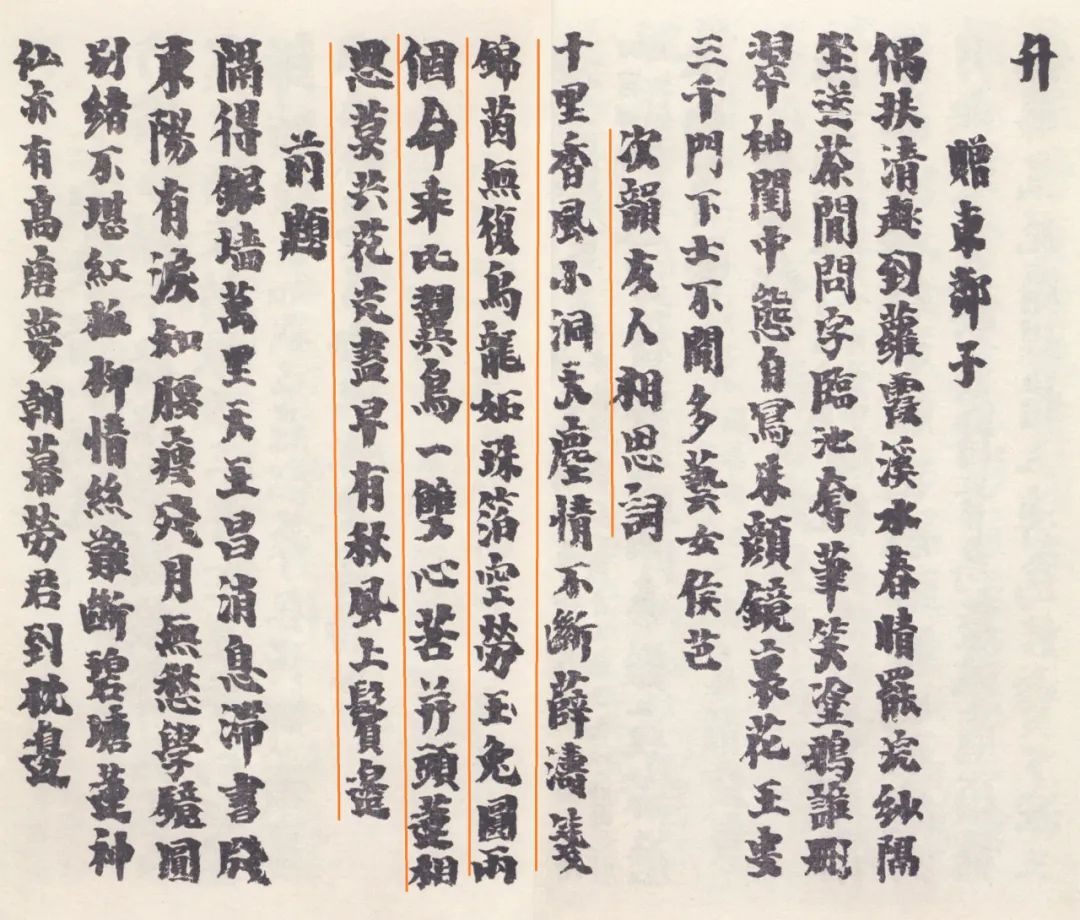 升
贈東鄰子
偶扶清興到蘿霞溪水春晴罷浣紗隔
坐送茶閒問字臨池奪筆笑塗鴉誰刪
翠袖閨中態自寫朱顏鏡裏花王
三千門下士不聞多藝女侯芭
次韻友人相思詞
十里香風小洞天塵情不斷薛濤箋
錦茵無復烏龍妬珠箔空勞玉兔圓兩
個命乖比翼鳥一雙心苦并頭蓮相
思莫共花盡早有秋風上鬢邊
前題
隔得銀墻萬里天王昌消息滯書牋
東陽有淚知腰瘦殘月無愁學靨圓
別緒不堪紅板柳情絲難斷碧塘蓮神
仙亦有高唐夢朝暮勞君到枕邊